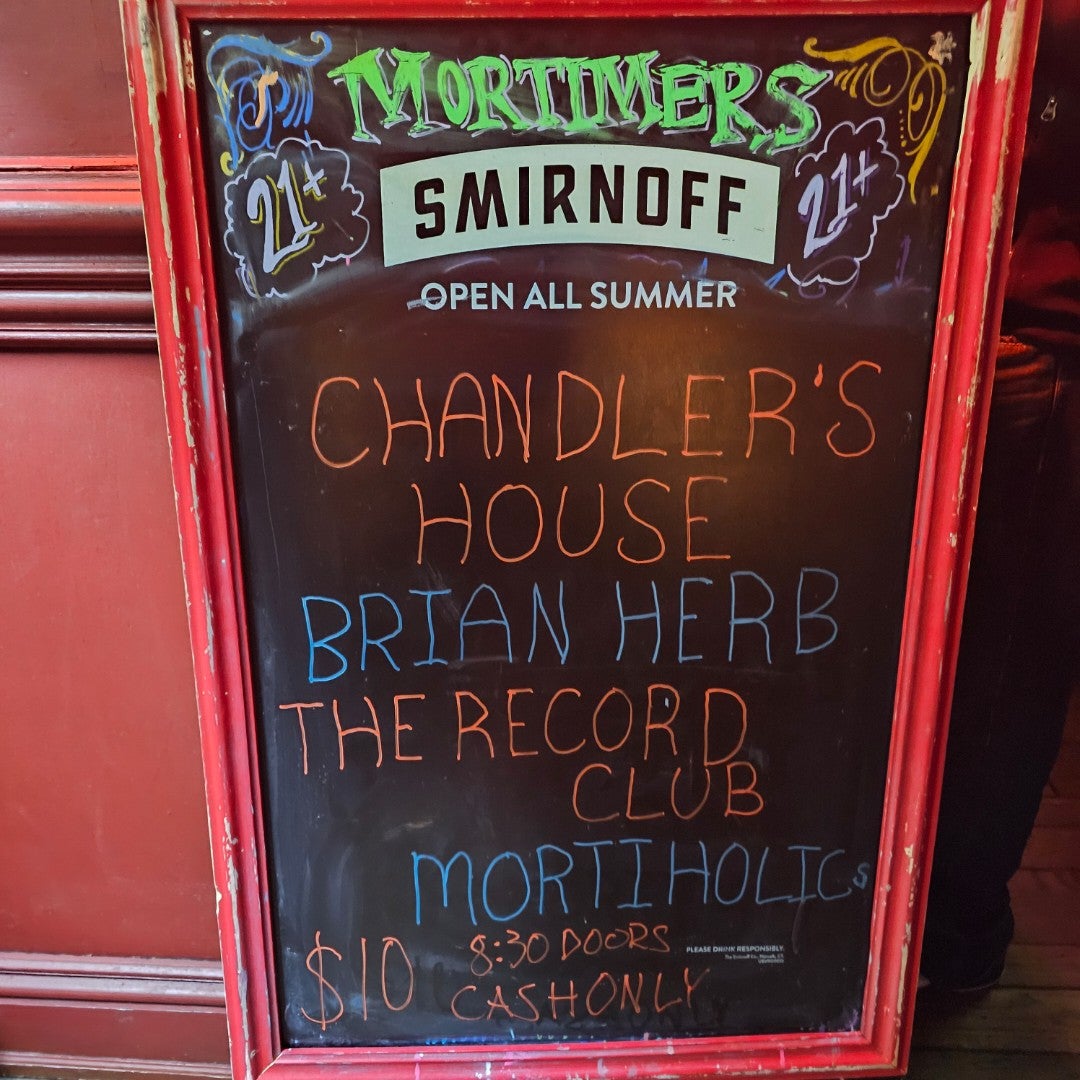 MORTIMERS
21+
SMIRNOFF
21+
OPEN ALL SUMMER
CHANDLER'S
HOUSE
BRIAN HERB
THE RECORD
CLUB
MORTIHOLICs
$10
8:30 DOORS
CASH ONLY
PLEASE DRINK RESPONSIBLY.